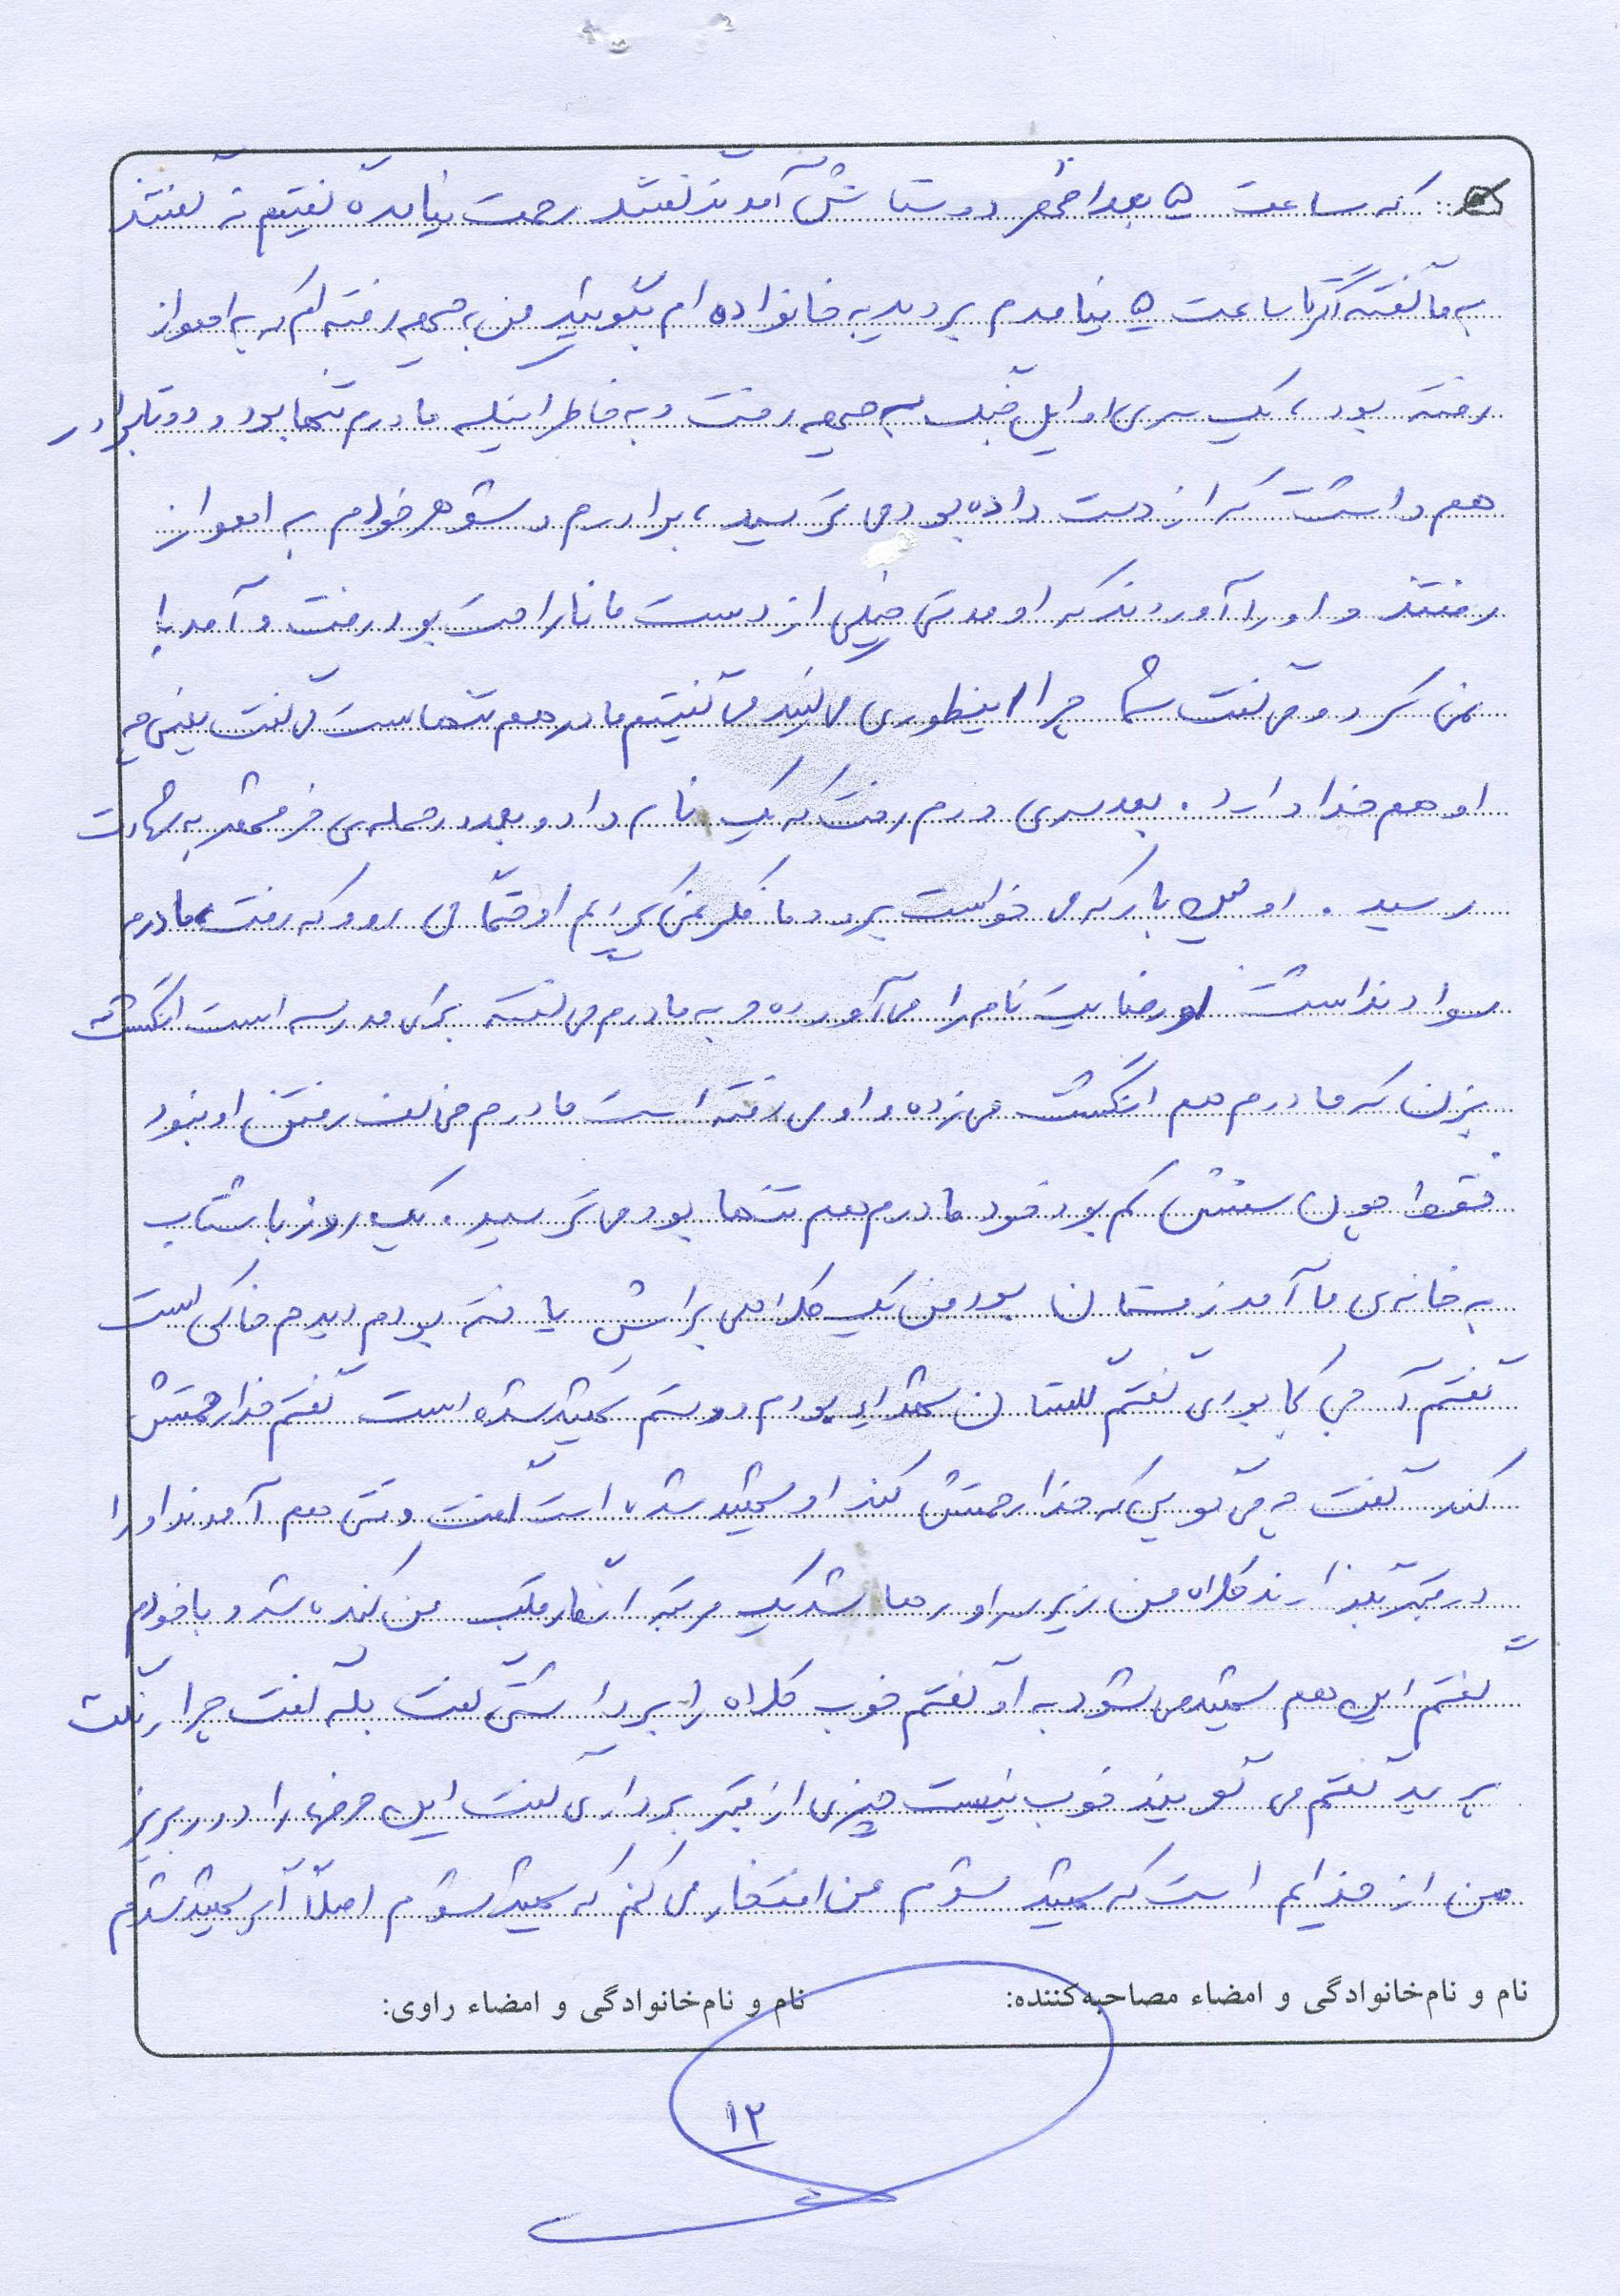 که ساعت ۵ بعدازظهر دوستانش آمدند گفتند رحمت نیامده گفتیم نه گفتند
به ما گفته اگر تا ساعت ۵ نیامدم بروید به خانواده ام بگویید من به جبهه رفته ام که به اهواز
رفته بود، یک سری اوایل جنگ به جبهه رفت و به خاطر اینکه مادرم تنها بود و دو تا برادر
هم داشت که از دست داده بود می ترسید، برادرم و شوهر خودم به اهواز
رفتند و او را آوردند که او مدتی خیلی از دست ما ناراحت بود رفت و آمد با
نمی کرد و می گفت شما چرا اینطوری می کنید می گفتیم مادر هم تنهاست می گفت یعنی چه
او هم خدا دارد. بعد سری دوم رفت که یک نامه داد و بعد در حمله ی خرمشهر به شهادت
رسید. اولین بار که می خواست برود ما فکر نمی کردیم او حتماً می رود که رفت، مادرم
سواد نداشت او رضایت نامه را می آورده و به مادرم می گفته برای مدرسه است انگشت
بزن که مادرم هم انگشت می زده و او می رفته است مادرم مخالف رفتن او نبود
فقط چون سنش کم بود خود مادرم هم تنها بود می ترسید. یک روز با شتاب
به خانه ی ما آمد زمستان بود من یک کلاهی برایش بافته بودم دیدم خاکی است
گفتم آ جی کجا بودی گفتم گلستان شهدا بودم دوستم شهید شده است گفتم خدا رحمتش
کند گفت چه می گویی که خدا رحمتش کند او شهید شده است گفت وقتی هم آمدند او را
در قبر بگذارند کلاه من زیر سر او رها شد یک مرتبه انگار قلب من کنده شد و با خودم
گفتم این هم شهید می شود به او گفتم خوب کلاه را برداشتی گفت بله گفت چرا رنگت
پرید گفتم می گویند خوب نیست چیزی از قبر برداری گفت این حرفها را دور بریز
من از خدایم است که شهید شوم من افتخار می کنم که شهید شوم اصلاً اگر شهید شدم
نام و نام‌خانوادگی و امضاء مصاحبه‌کننده: نام و نام‌خانوادگی و امضاء راوی:
۱۲